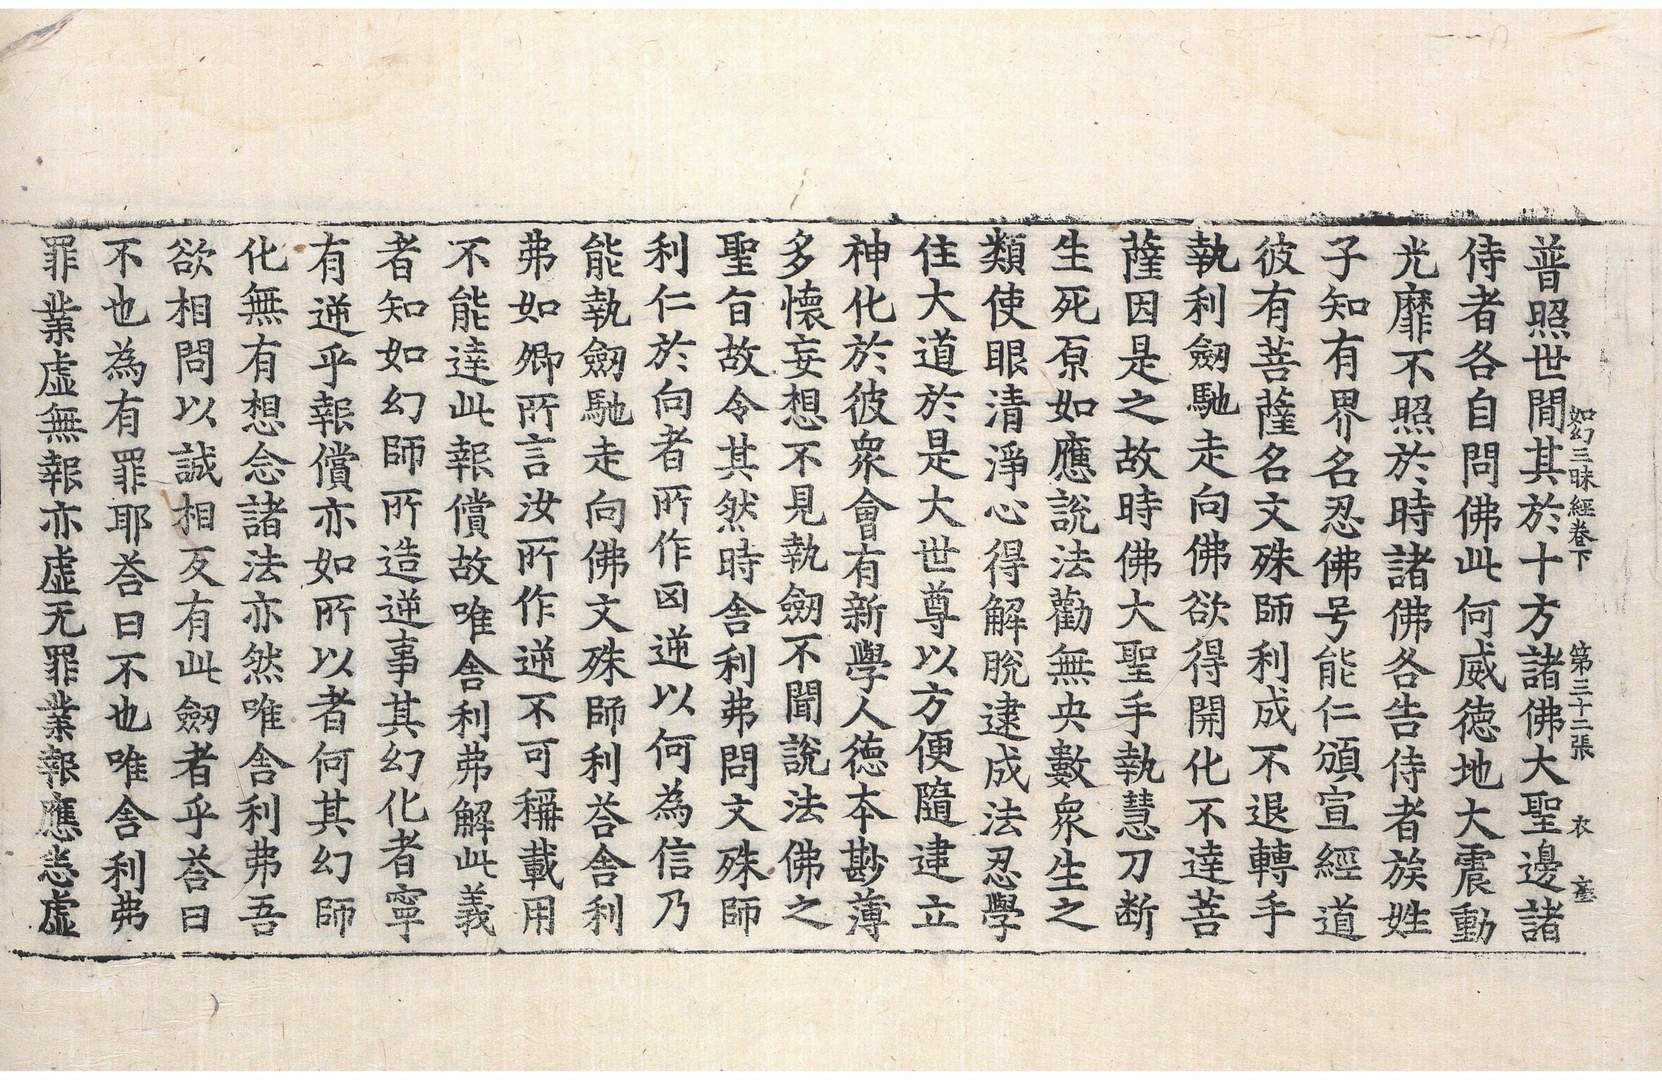 如幻三昧經卷下　第三十二張　衣
普照世間其於十方諸佛大聖邊諸
侍者各自問佛此何威德地大震動
光靡不照於時諸佛各告侍者族姓
子知有界名忍佛号能仁頒宣經道
彼有菩薩名文殊師利成不退轉手
執利劒馳走向佛欲得開化不達菩
薩因是之故時佛大聖手執慧刀断
生死原如應說法勸無央數衆生之
類使眼清淨心得解脫逮成法忍學
住大道於是大世尊以方便隨逮立
神化於彼衆會有新學人德本尠薄
多懷妄想不見執劒不聞說法佛之
聖旨故令其然時舎利弗問文殊師
利仁於向者所作凶逆以何為信乃
能執劒馳走向佛文殊師利荅舎利
弗如卿所言汝所作逆不可稱載用
不能達此報償故唯舎利弗解此義
者知如幻師所造逆事其幻化者寧
有逆乎報償亦如所以者何其幻師
化無有想念諸法亦然唯舎利弗吾
欲相問以誠相反有此劒者乎荅曰
不也為有罪耶荅曰不也唯舎利弗
罪業虛無報亦虛无罪業報應恙虛